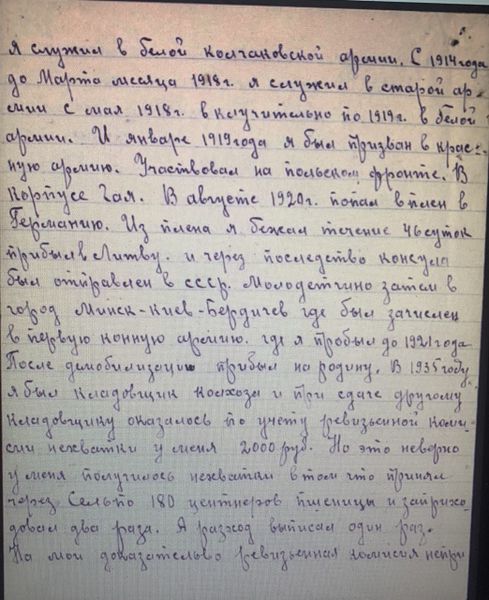 я служил в белой колчаковской армии. С 1914 года
до Марта месяца 1918 г. я служил в старой ар-
мии с мая 1918 г. включительно по 1919 г. в белой
армии. И январе 1919 года я был призван в крас-
ную армию. Участвовал на польском фронте. В
корпусе Гая. В августе 1920 г. попал в плен в
Германию. Из плена я бежал течение 46 суток
прибыл в Литву. и через последство консула
был отправлен в ссср. Молодетчино затем в
город Минск-Киев-Бердичев где был зачислен
в первую конную армию. где я пробыл до 1921 года
После демобилизации прибыл на родину. В 1935 году
я был кладовщик колхоза и при сдаче другому
кладовщику оказалось по учету ревизьеной коми-
сии нехватки у меня 2000 руб. Но это неверно
у меня получилось нехватки в том что принял
через Сельпо 180 центнеров пшеницы и заприхо-
довал два раза. А расход выписал один раз.
На мои доказательво ревизьенная комисия непри